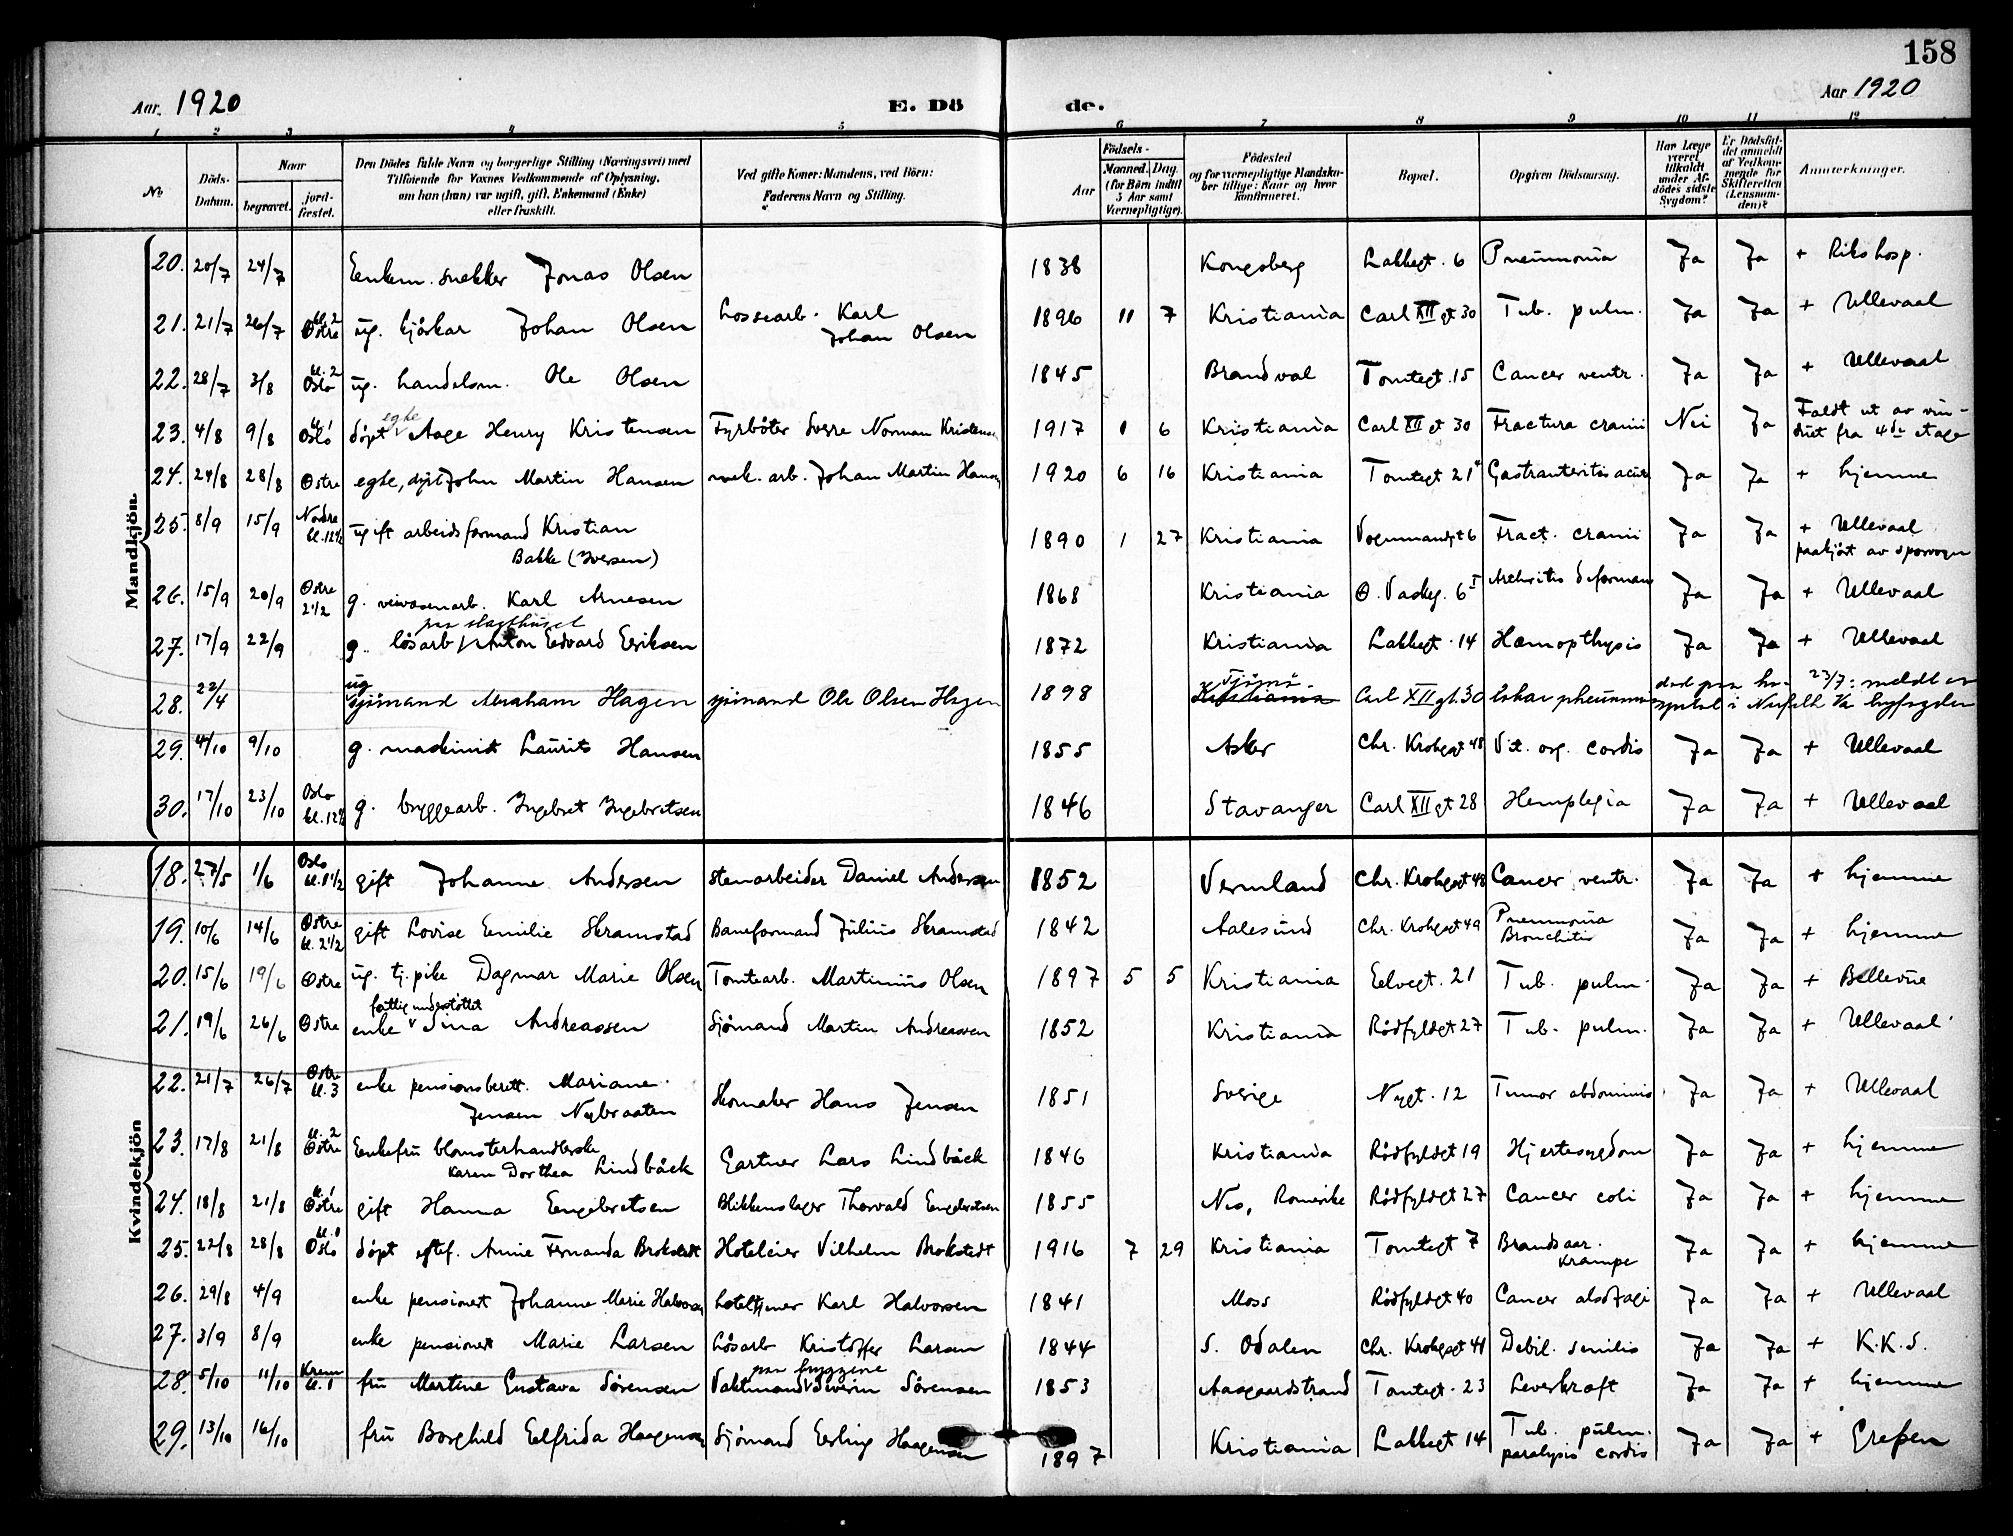 158
Aar. 1920 E. Dö de. Aar 1920
1 2 3 4 5 6 7 8 9 10 11 12
No Döds-Datum. Naar begravet. jord-fæstet. Den Dödes fulde Navn og borgerlige Stilling (Næringsvei) med Tilföiende for Voxnes Vedkommende af Oplysning, om han (hun) var ugift, gift, Enkemand (Enke) eller fraskilt. Ved gifte Koner: Mandens, ved Börn: Faderens Navn og Stilling. Aar Födsels- Maaned. Dag. (for Börn indtil 5 Aar samt Værnepligtige). Födested og for værnepligtige Mandskaber tillige: Naar og hvor konfirmeret. Bopæl. Opgiven Dödsaarsag. Har Læge været tilkaldt under Afdödes sidste Sygdom? Er Dödsfaldet anmeldt af Vedkommende for Skifteretten (Lensmanden)? Anmerkninger.
Mandkjön
20. 20/7 24/7 Enkem. snekker Jonas Olsen 1838 Kongsberg Lakkegt. 6 Pneumonia Ja Ja + Rikshosp.
21. 21/7 26/7 kl. 2 Østre ug. kjørkar Johan Olsen Lossearb. Karl Johan Olsen 1896 11 7 Kristiania Carl XII gt 30 Tub. pulm. Ja Ja + Ullevaal
22. 28/7 3/8 kl. 2 Oslo ug. handelsm. Ole Olsen 1845 Brandval Tomtegt. 15 Cancer ventr. Ja Ja + Ullevaal
23. 4/8 9/8 kl. 1 Oslo döpt egte Aage Henry Kristensen Fyrböter Sverre Norman Kristensen 1917 1 6 Kristiania Carl XII gt 30 Fractura cranii Nei Ja Faldt ut av vin-duet fra 4de etage
24. 24/8 28/8 Østre egte, döpt John Martin Hansen mek. arb. Johan Martin Hansen 1920 6 16 Kristiania Tomtegt 21 Gastroenteritis acuta Ja Ja + hjemme
25. 8/9 15/9 Nordre kl. 12½ ugift arbeidsformand Kristian Bakke (Iversen) 1890 1 27 Kristiania Vognmandsgt 6 Fract. cranii Ja Ja + Ullevaal paakjört av sporvogn
26. 15/9 20/9 Østre 2½ g. veivæsenarb. Karl Arnesen 1868 Kristiania Ø. Vaskeg. 6 I Arthritis deformans Ja Ja + Ullevaal
27. 17/9 22/9 g. lösarb. paa slagthuset Anton Edvard Eriksen 1872 Kristiania Lakkegt. 14 Hæmopthysis Ja Ja + Ullevaal
28. 22/4 ug sjömand Abraham Hagen sjömand Ole Olsen Hagen 1898 Kristiania Tjömö Carl XII gt. 30 lobar pneumoni död paa hospital i Norfolk Va 23/7: meldt
29. 4/10 9/10 g. maskinist Laurits Hansen 1855 Asker Chr. Krohgsgt 48 Vit. org. cordis Ja Ja + Ullevaal
30. 17/10 23/10 Oslo kl. 12½ g. bryggearb. Ingebret Ingebretsen 1846 Stavanger Carl XII gt 28 Hemplegia Ja Ja + Ullevaal
Kvindekjön
18. 27/5 1/6 Oslo kl. 1½ gift Johanne Andersen stenarbeider Daniel Andersen 1852 Vermland Chr. Krohgsgt 48 Cancer ventr. Ja Ja + hjemme
19. 10/6 14/6 Østre kl. 2½ gift Lovise Emilie Skramstad Baneformand Julius Skramstad 1842 Aalesund Chr. Krohgsgt 49 Pneumonia Bronchitis Ja Ja + hjemme
20. 15/6 19/6 Østre ug. tj.pike Dagmar Marie Olsen Tomtearb. Martinius Olsen 1897 5 5 Kristiania Elvegt. 21 Tub. pulm. Ja Ja + Bellevue
21. 19/6 26/6 Østre enke fattigunderstöttet Sina Andreassen Sjömand Martin Andreassen 1852 Kristiania Rödfyldgt 27 Tub. pulm. Ja Ja + Ullevaal
22. 21/7 26/7 Østre kl. 3 enke pensionsberett. Mariane Jensen Nybraaten Skomaker Hans Jensen 1851 Sverige Nygt. 12 Tumor abdominis Ja Ja + Ullevaal
23. 17/8 21/8 kl. 2 Østre Enkefru blomsterhandlerske Karen Dorthea Lindbäck Gartner Lars Lindbäck 1846 Kristiania Rödfyldgt 19 Hjertesygdom Ja Ja + hjemme
24. 18/8 21/8 kl. 1 Østre gift Hanna Engebretsen Blikkenslager Thorvald Engebretsen 1855 Nes, Romerike Rödfyldgt 27 Cancer coli Ja Ja + hjemme
25. 22/8 28/8 kl. 1 Oslo döpt eftef. Annie Fernanda Brokstedt Hoteleier Vilhelm Brokstedt 1916 7 29 Kristiania Tomtegt 7 Brandsaar. Krampe Ja Ja + hjemme
26. 29/8 4/9 enke pensionert Johanne Marie Halvorsen hoteltjener Karl Halvorsen 1841 Moss Rödfyldgt 40 Cancer Ja Ja + Ullevaal
27. 3/9 8/9 enke pensionert Marie Larsen Lösarb Kristoffer Larsen 1844 S. Odalen Chr. Krohgsgt 41 Debil. senilis Ja Ja + K.K.S.
28. 5/10 11/10 Krem kl. 1 fru Martine Gustava Sörensen Vaktmand paa bryggene Severin Sörensen 1853 Aasgaardstrand Tomtegt. 23 Leverkræft Ja Ja + hjemme
29. 13/10 16/10 fru Borghild Elfrida Haagensen Sjömand Erling Haagensen 1897 Kristiania Lakkegt 14 Tub. pulm. paralysis cordis Ja Ja + Grefsen